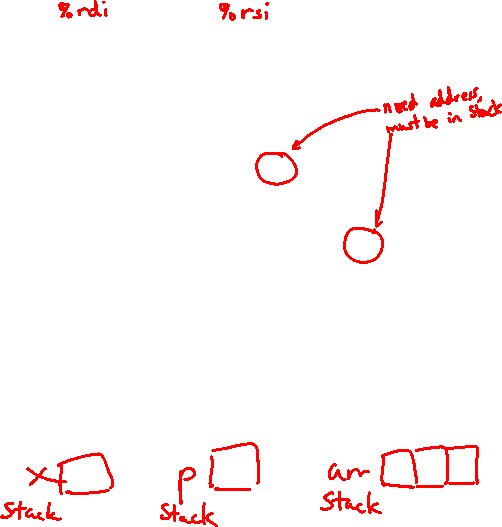 %rdi %rsi
need address,
must be in stack
x p arr
Stack Stack Stack